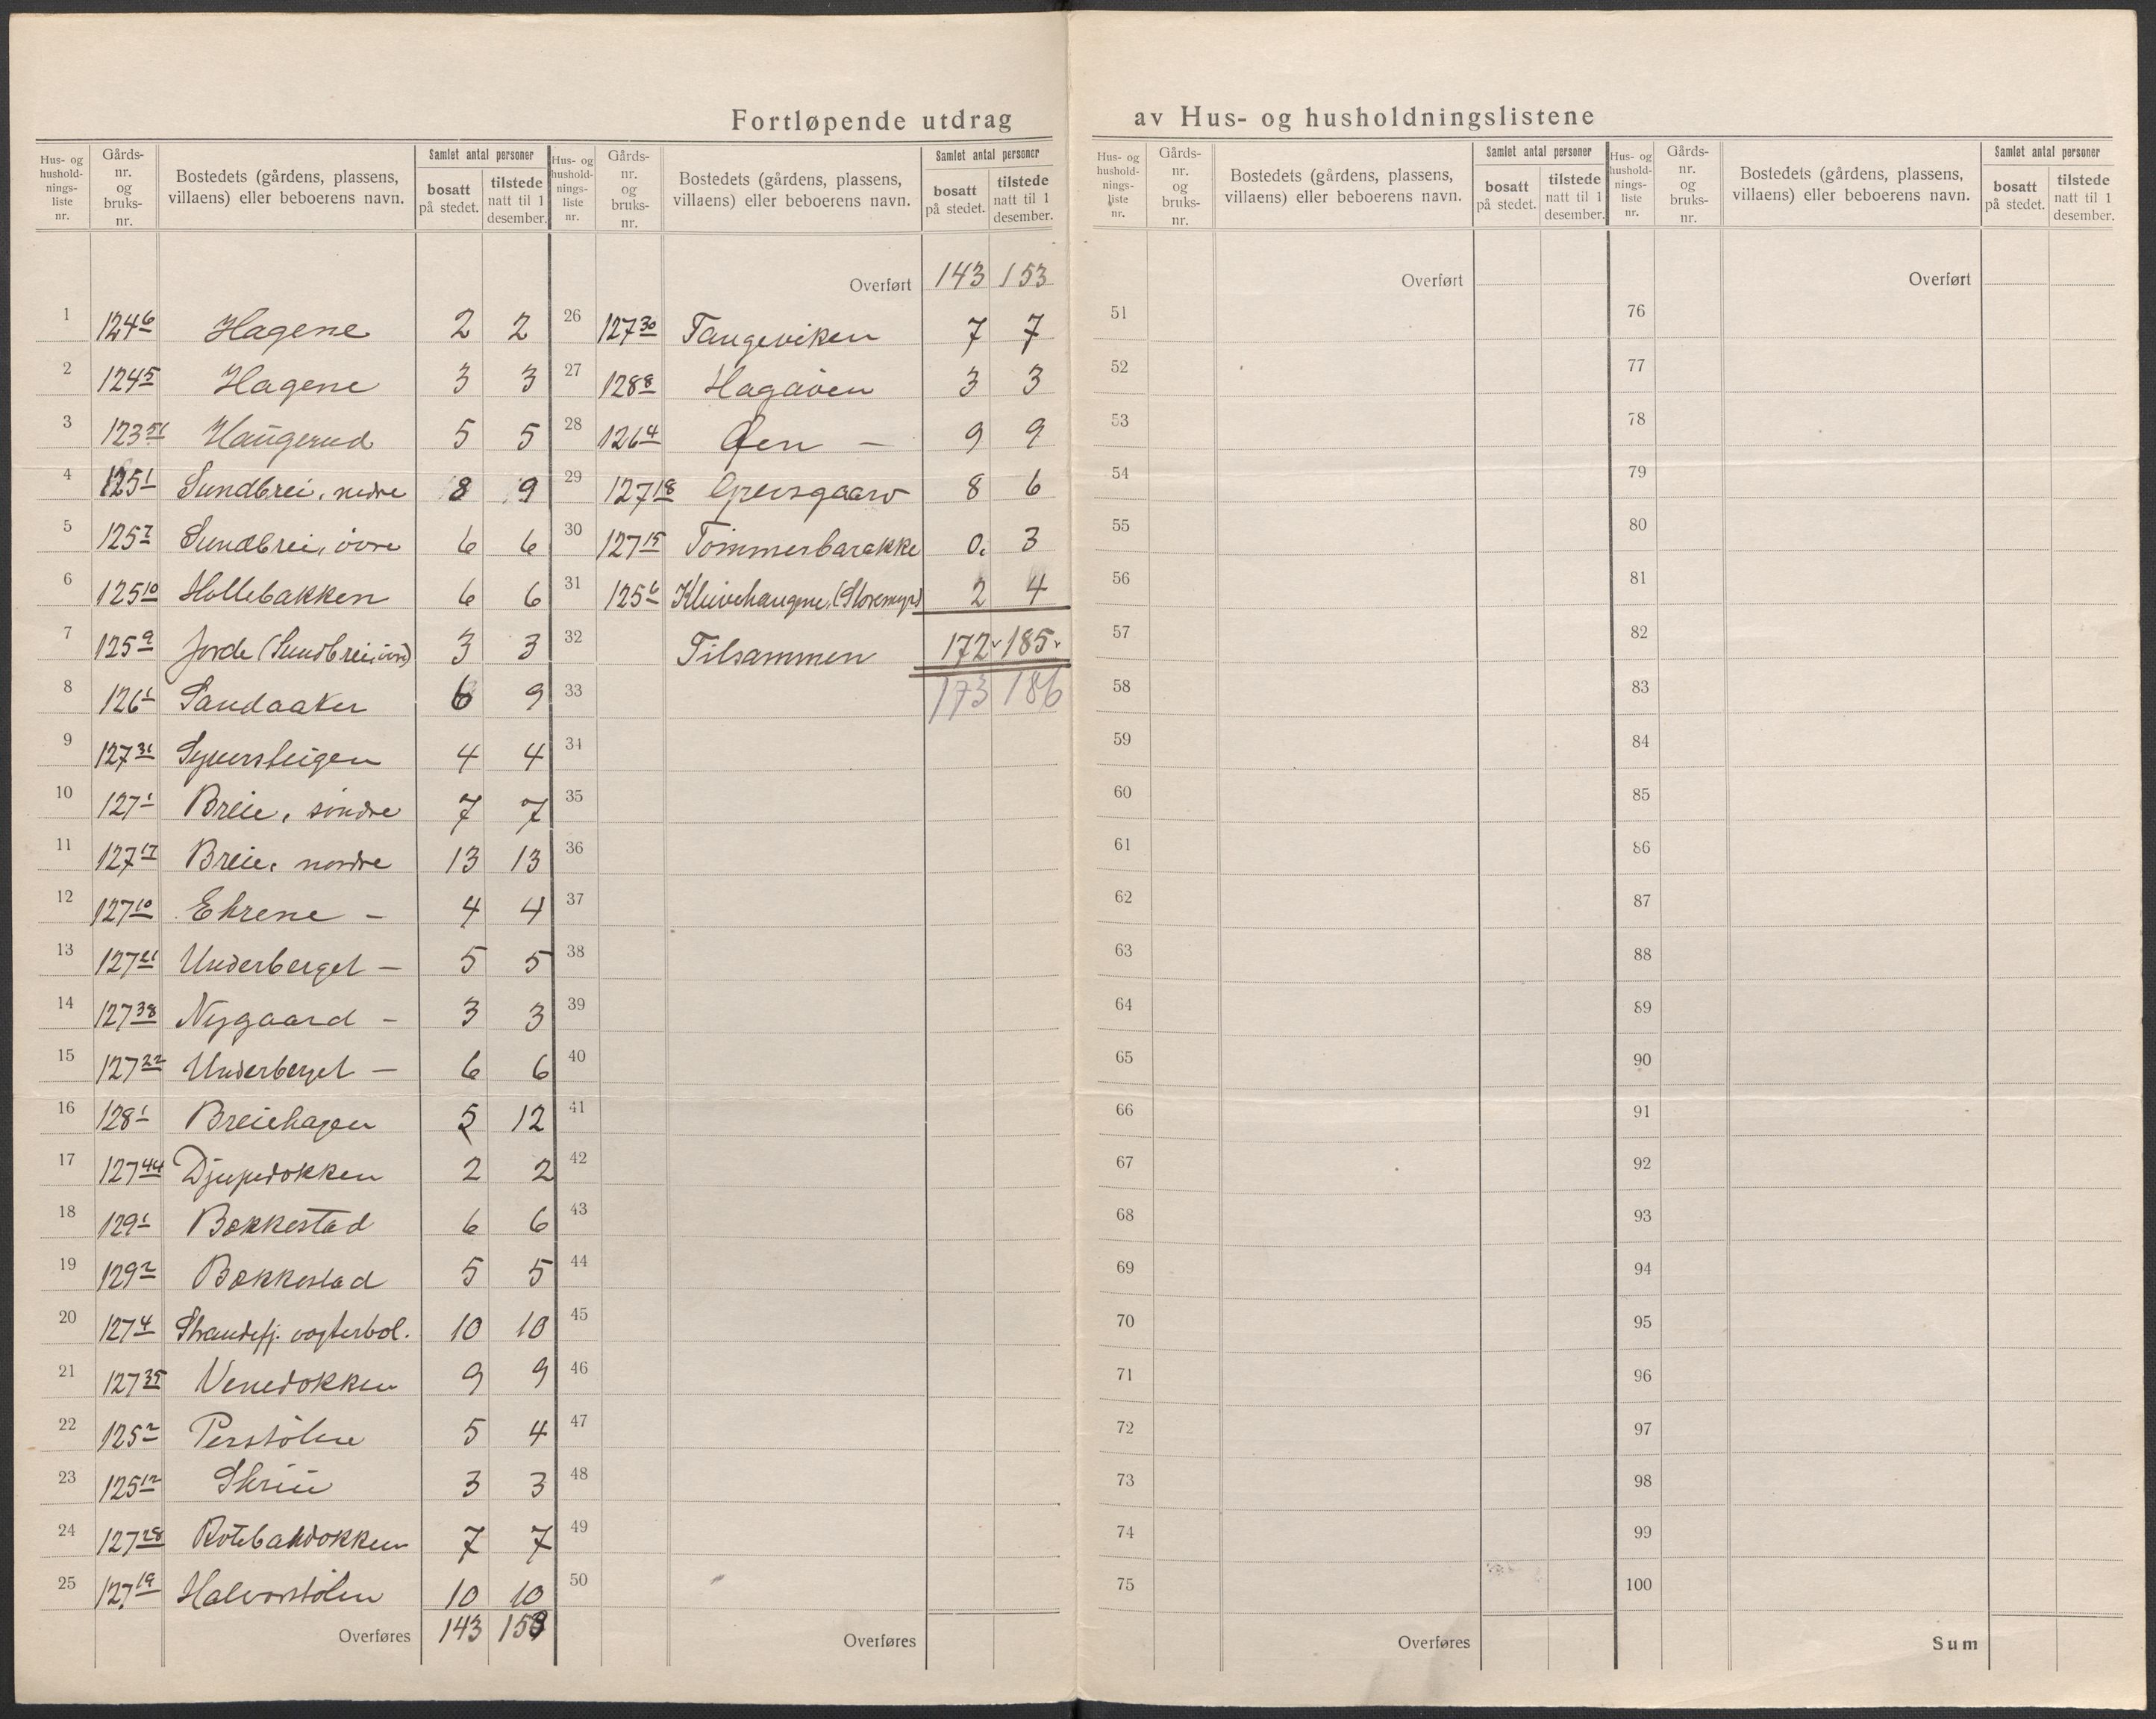 Fortløpende utdrag av Hus- og husholdningslistene
Hus- og husholdnings- liste nr. | Gårds- nr. og bruks- nr. | Bostedets (gårdens, plassens, villaens) eller beboerens navn. | Samlet antal personer | bosatt på stedet. | tilstede natt til 1 desember.
1 124 6 Hagene 2 2
2 124 5 Hagene 3 3
3 123 51 Haugerud 5 5
4 125 1 Sundbrei, nedre 8 9
5 125 7 Sundbrei, övre 6 6
6 125 10 Hollebakken 6 6
7 125 9 Jorde (Sundbrei, övre) 3 3
8 126 1 Sandaaker 6 9
9 127 31 Syversteigen 4 4
10 127 1 Breie, söndre 7 7
11 127 17 Breie, nordre 13 13
12 127 10 Ekrene – 4 4
13 127 21 Underberget – 5 5
14 127 38 Nygaard – 3 3
15 127 22 Underberget – 6 6
16 128 1 Breiehagen 5 12
17 127 44 Djupedokken 2 2
18 129 1 Bækkestad 6 6
19 129 2 Bækkestad 5 5
20 127 4 Strandefj. vogterbol. 10 10
21 127 35 Venedokken 9 9
22 125 2 Perstölen 5 4
23 125 12 Skrui 3 3
24 127 28 Rotebakdokken 7 7
25 127 19 Halvorstölen 10 10
Overføres 143 153
Hus- og husholdnings- liste nr. | Gårds- nr. og bruks- nr. | Bostedets (gårdens, plassens, villaens) eller beboerens navn. | Samlet antal personer | bosatt på stedet. | tilstede natt til 1 desember.
Overført 143 153
26 127 30 Tangeviken 7 7
27 128 8 Hagaöen 3 3
28 126 4 Øen – 9 9
29 127 18 Greisgaard 8 6
30 127 15 Tömmerbarakke 0. 3
31 125 6 Kluvehaugene (Storemyr) 2 4
32 Tilsammen 172 185
33 173 186
34
35
36
37
38
39
40
41
42
43
44
45
46
47
48
49
50
Overføres
Hus- og husholdnings- liste nr. | Gårds- nr. og bruks- nr. | Bostedets (gårdens, plassens, villaens) eller beboerens navn. | Samlet antal personer | bosatt på stedet. | tilstede natt til 1 desember.
Overført
51
52
53
54
55
56
57
58
59
60
61
62
63
64
65
66
67
68
69
70
71
72
73
74
75
Overføres
Hus- og husholdnings- liste nr. | Gårds- nr. og bruks- nr. | Bostedets (gårdens, plassens, villaens) eller beboerens navn. | Samlet antal personer | bosatt på stedet. | tilstede natt til 1 desember.
Overført
76
77
78
79
80
81
82
83
84
85
86
87
88
89
90
91
92
93
94
95
96
97
98
99
100
Sum